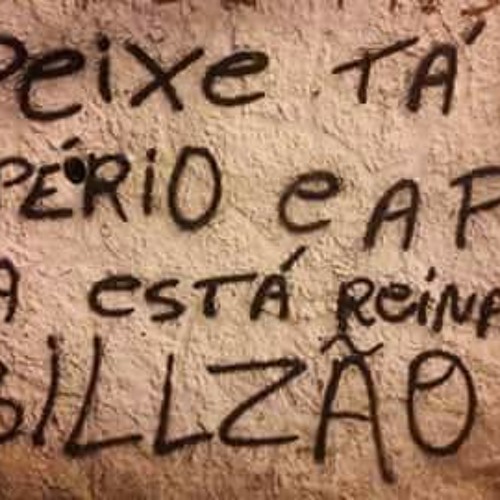 Peixe TÁ
PÉRIO e A P
A ESTÁ REINA
BILLZÃO